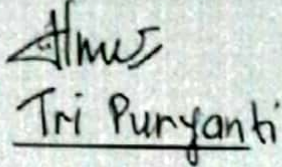 Tri Puryanti